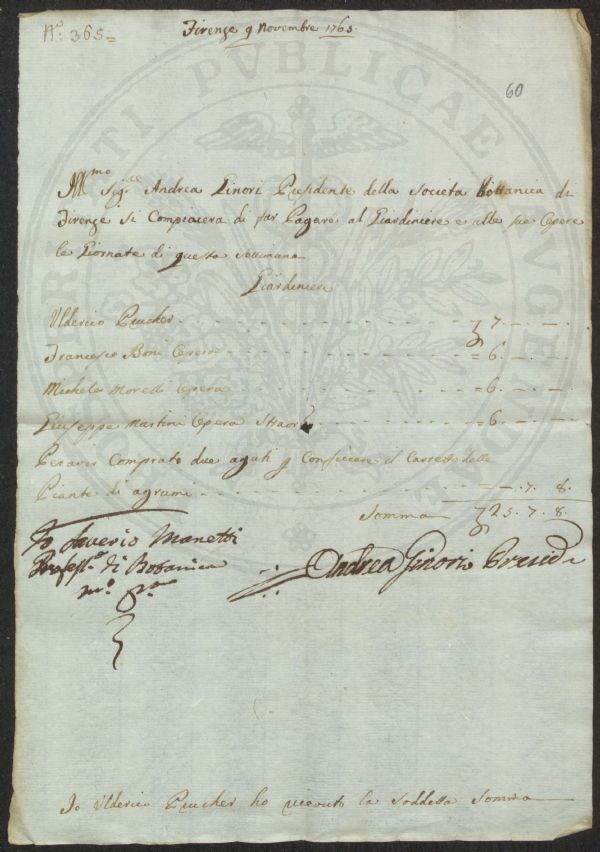 N.º 365=
Firenze 9 Novembre 1765.
60
Ill.mo Sig.re Andrea Ginori Presidente della Società Bottanica di
Firenze si Compiacerà di far Pagare al Giardiniere e alle sue Opere
le Giornate di questa settimana
Giardiniere
Ulderico Prucher 7. — —
Francesco Boni Opera = 6. — —
Michele Moredi Opera = 6. — —
Giuseppe Martini Opera Straord = 6. — —
Per aver Comprato due aguti p Conficcare il Carretto delle
Piante di agrumi — . 7. 8.
Somma 25. 7. 8.
Io Saverio Manetti
Profess.e di Botanica
m.o p.a
Andrea Ginori Presid.e
Io Ulderico Prucher ho ricevuto la Soddetta Somma
PUBLICAE